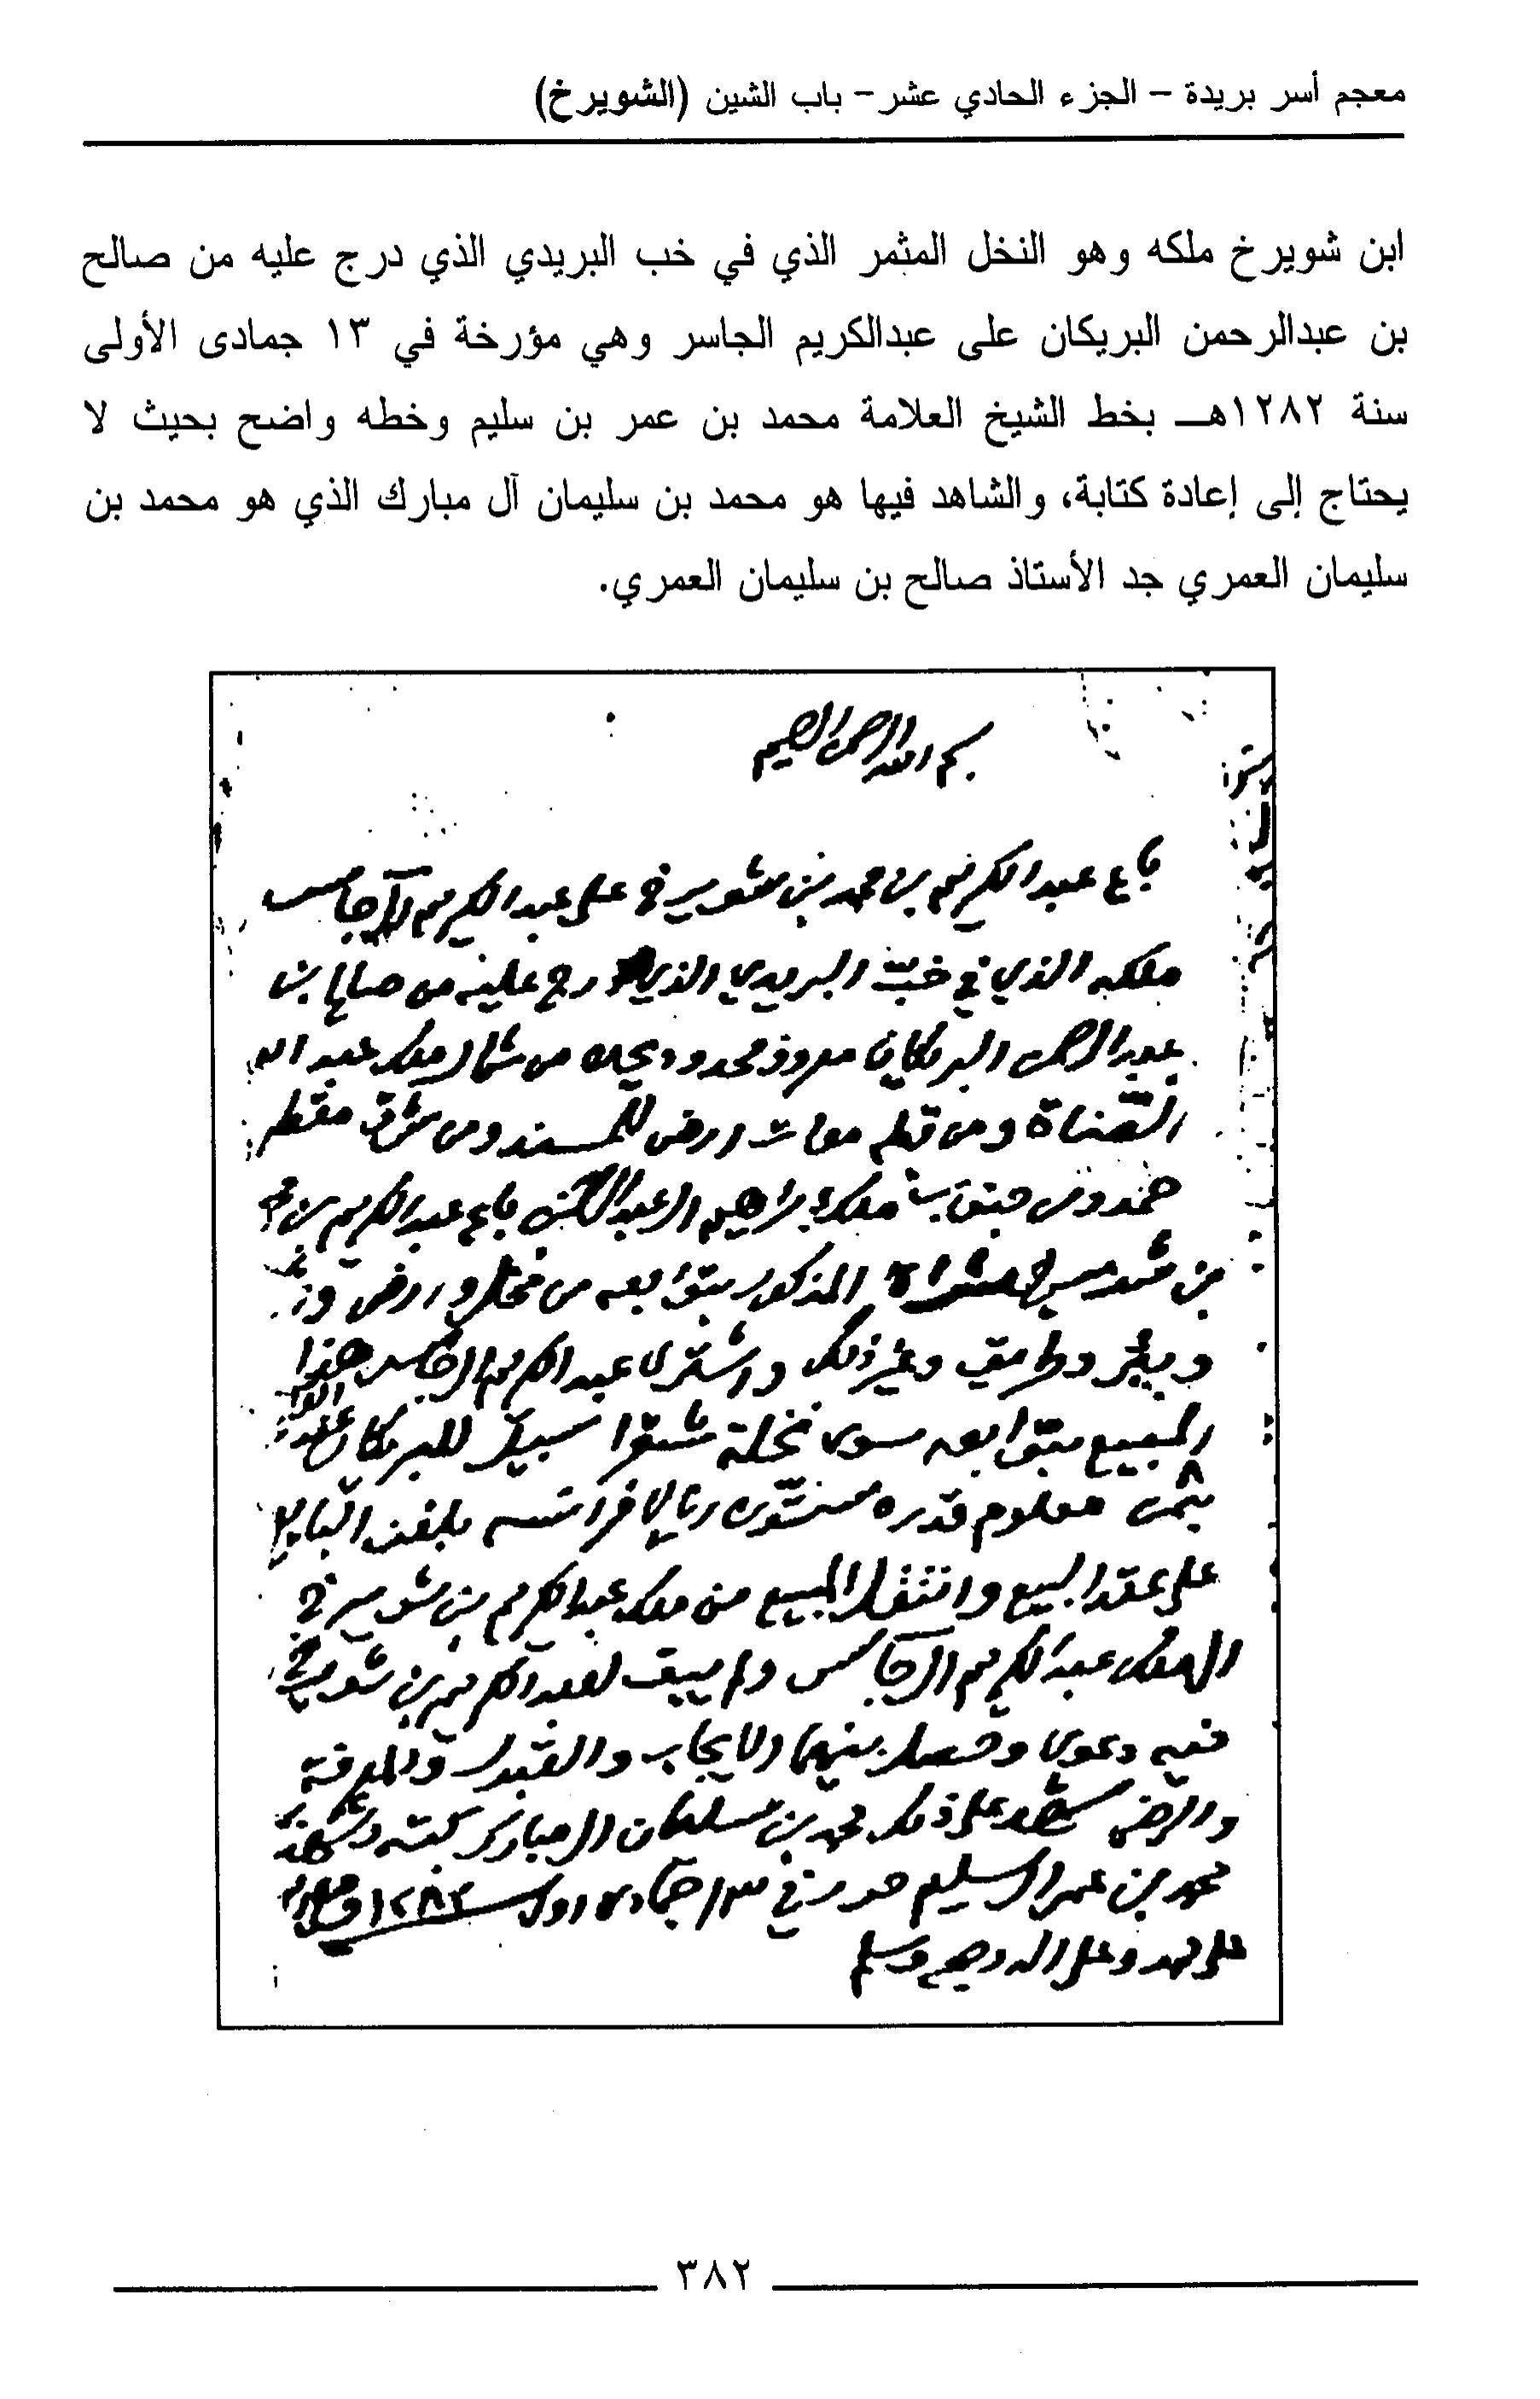 معجم أسر بريدة – الجزء الحادي عشر – باب الشين (الشويرخ)
ابن شويرخ ملكه وهو النخل المثمر الذي في خب البريدي الذي درج عليه من صالح
بن عبدالرحمن البريكان على عبدالكريم الجاسر وهي مؤرخة في ١٣ جمادى الأولى
سنة ١٢٨٢هـ بخط الشيخ العلامة محمد بن عمر بن سليم وخطه واضح بحيث لا
يحتاج إلى إعادة كتابة، والشاهد فيها هو محمد بن سليمان آل مبارك الذي هو محمد بن
سليمان العمري جد الأستاذ صالح بن سليمان العمري.
بسم الله الرحمن الرحيم
باع عبدالكريم بن محمد بن شويرخ على عبدالكريم الجاسر
ملكه الذي في خب البريدي الذي درج عليه من صالح بن
عبدالرحمن البريكان معروف محدود يحده من شمال ملك عبدالله
القضاة ومن قبله موات ارض للمسند ومن شرق مقطر
حمد ومن جنوب ملك ابراهيم العبدالمحسن باع عبدالكريم بن
بن شويرخ المذكور بتوابعه من نخل وارض
وبئر وطريق وغير ذلك واشترى عبدالكريم الجاسر هذا
المبيع بتوابعه سوى نخلة شقرا سبيل للبريكان
بثمن معلوم قدره ريالا فرانسه بلغن البايع
على عقد البيع وانتقل المبيع من ملك عبدالكريم بن شويرخ
الى ملك عبدالكريم الجاسر ولم يبق لعبدالكريم بن شويرخ
فيه دعوى وحصل بينهما الايجاب والقبول والمعرفة
والرضى شهد على ذلك محمد بن سليمان ال مبارك كتبه وشهد به
محمد بن عمر ال سليم حرر في ١٣ جمادى اول ١٢٨٢ وصلى الله
على محمد وعلى اله وصحبه وسلم
٣٨٢